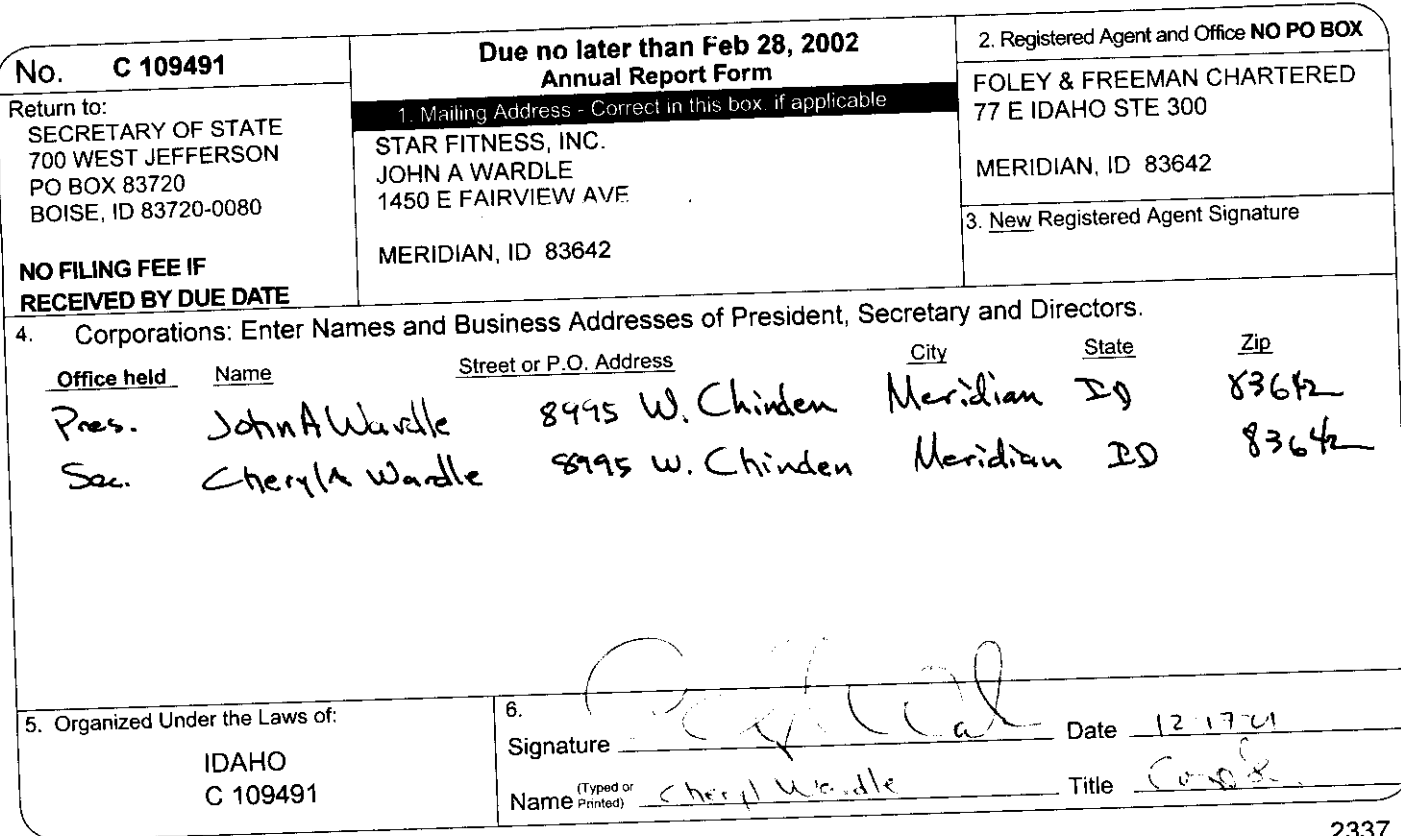 No. C 109491
Return to:
SECRETARY OF STATE
700 WEST JEFFERSON
PO BOX 83720
BOISE, ID 83720-0080
NO FILING FEE IF
RECEIVED BY DUE DATE
Due no later than Feb 28, 2002
Annual Report Form
1. Mailing Address - Correct in this box, if applicable
STAR FITNESS, INC.
JOHN A WARDLE
1450 E FAIRVIEW AVE
MERIDIAN, ID 83642
2. Registered Agent and Office NO PO BOX
FOLEY & FREEMAN CHARTERED
77 E IDAHO STE 300
MERIDIAN, ID 83642
3. New Registered Agent Signature
4. Corporations: Enter Names and Business Addresses of President, Secretary and Directors.
Office held Name Street or P.O. Address City State Zip
Pres. John A Wardle 8995 W. Chinden Meridian ID 83642
Sec. Cheryl A Wardle 8995 W. Chinden Meridian ID 83642
5. Organized Under the Laws of:
IDAHO
C 109491
6.
Signature Date 12-17-01
Name (Typed or Printed) Cheryl Wardle Title
2337